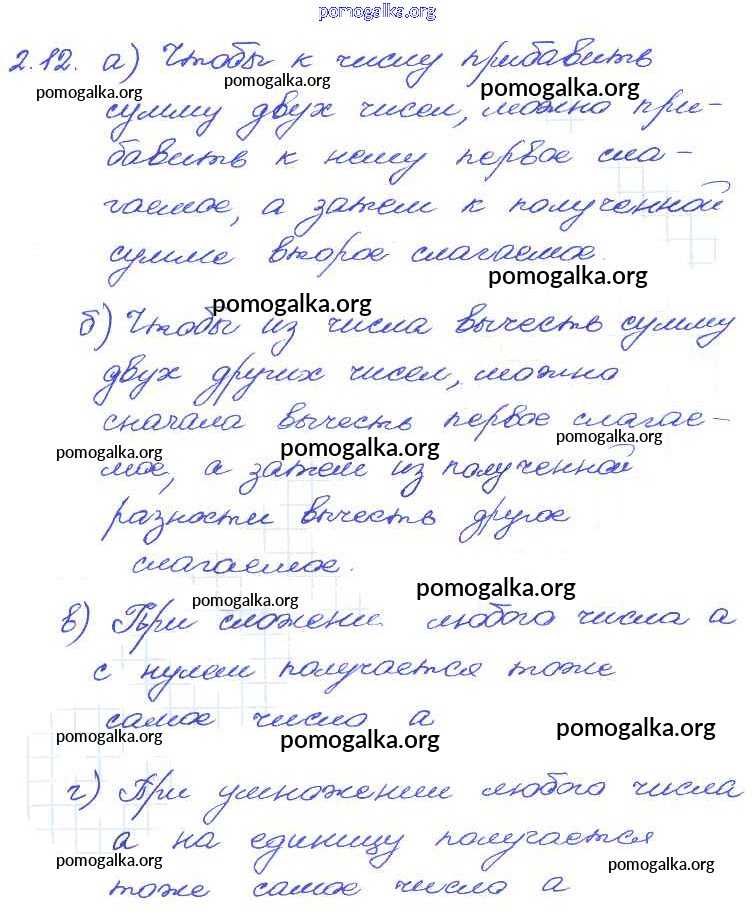 pomogalka.org
2.12. а) Чтобы к числу прибавить
pomogalka.org pomogalka.org pomogalka.org
сумму двух чисел, можно при-
бавить к нему первое сла-
гаемое, а затем к полученной
сумме второе слагаемое.
pomogalka.org
pomogalka.org
б) Чтобы из числа вычесть сумму
двух других чисел, можно
сначала вычесть первое слагае-
pomogalka.org pomogalka.org pomogalka.org
мое, а затем из полученной
разности вычесть другое
слагаемое.
pomogalka.org pomogalka.org
в) При сложени любого числа а
с нулем получается тоже
самое число а
pomogalka.org pomogalka.org pomogalka.org
г) При умножении любого числа
а на единицу получается
pomogalka.org pomogalka.org
тоже самое число а